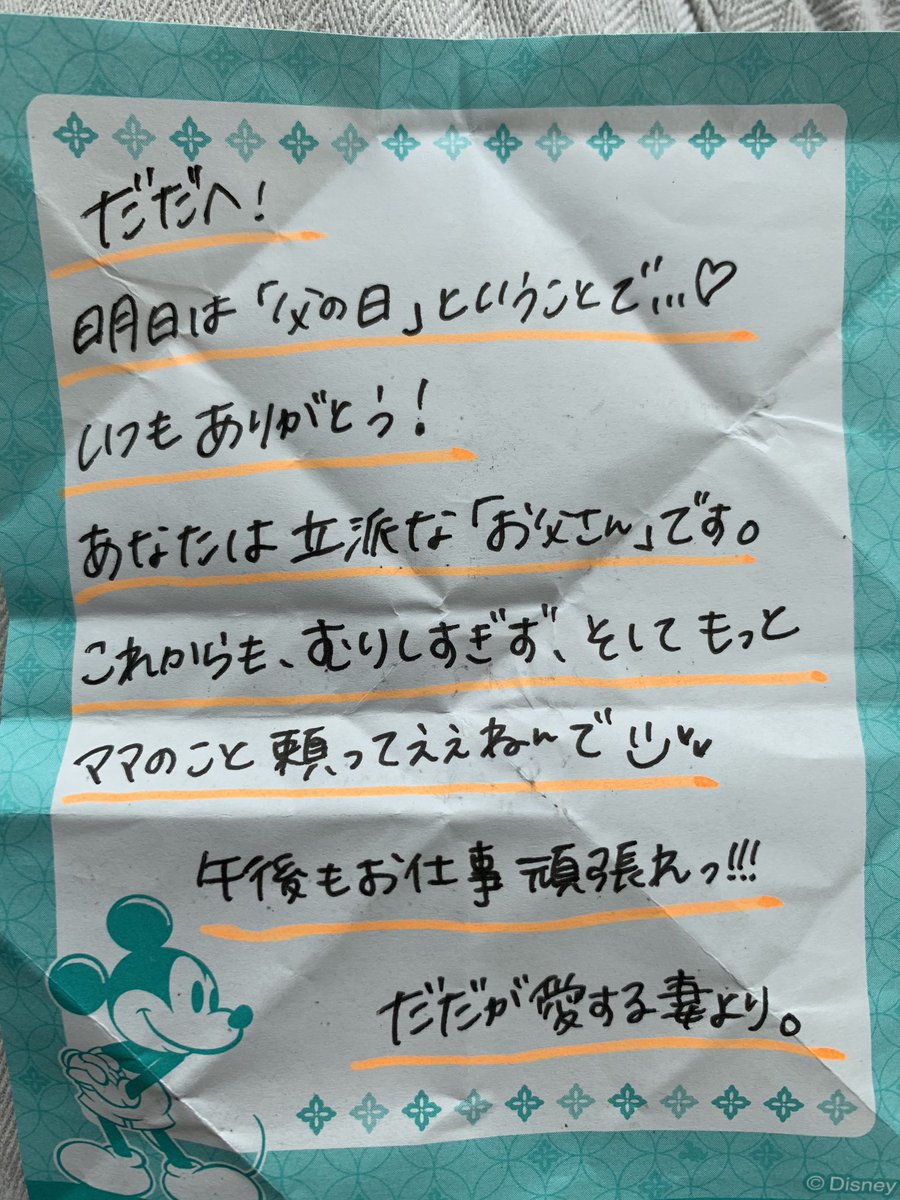 だだへ!
明日は「父の日」ということで…♡
いつもありがとう!
あなたは立派な「お父さん」です。
これからも、むりしすぎず、そしてもっと
ママのこと頼ってええねんで
午後もお仕事頑張れっ!!!
だだが愛する妻より。
© Disney